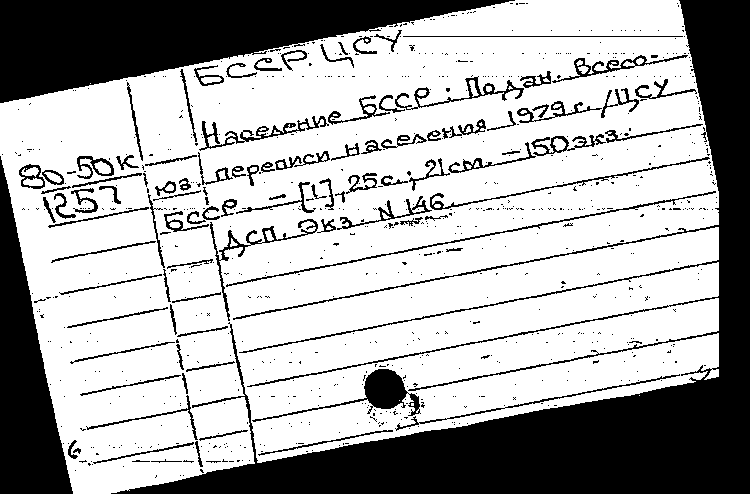 БССР. ЦСУ.
Население БССР : По дан. Всесо-
юз. переписи населения 1979 г. /ЦСУ
БССР. – [1], 25 с.; 21 см. – 150 экз.
Дсп. Экз. N 146.
80-50к
1257
6